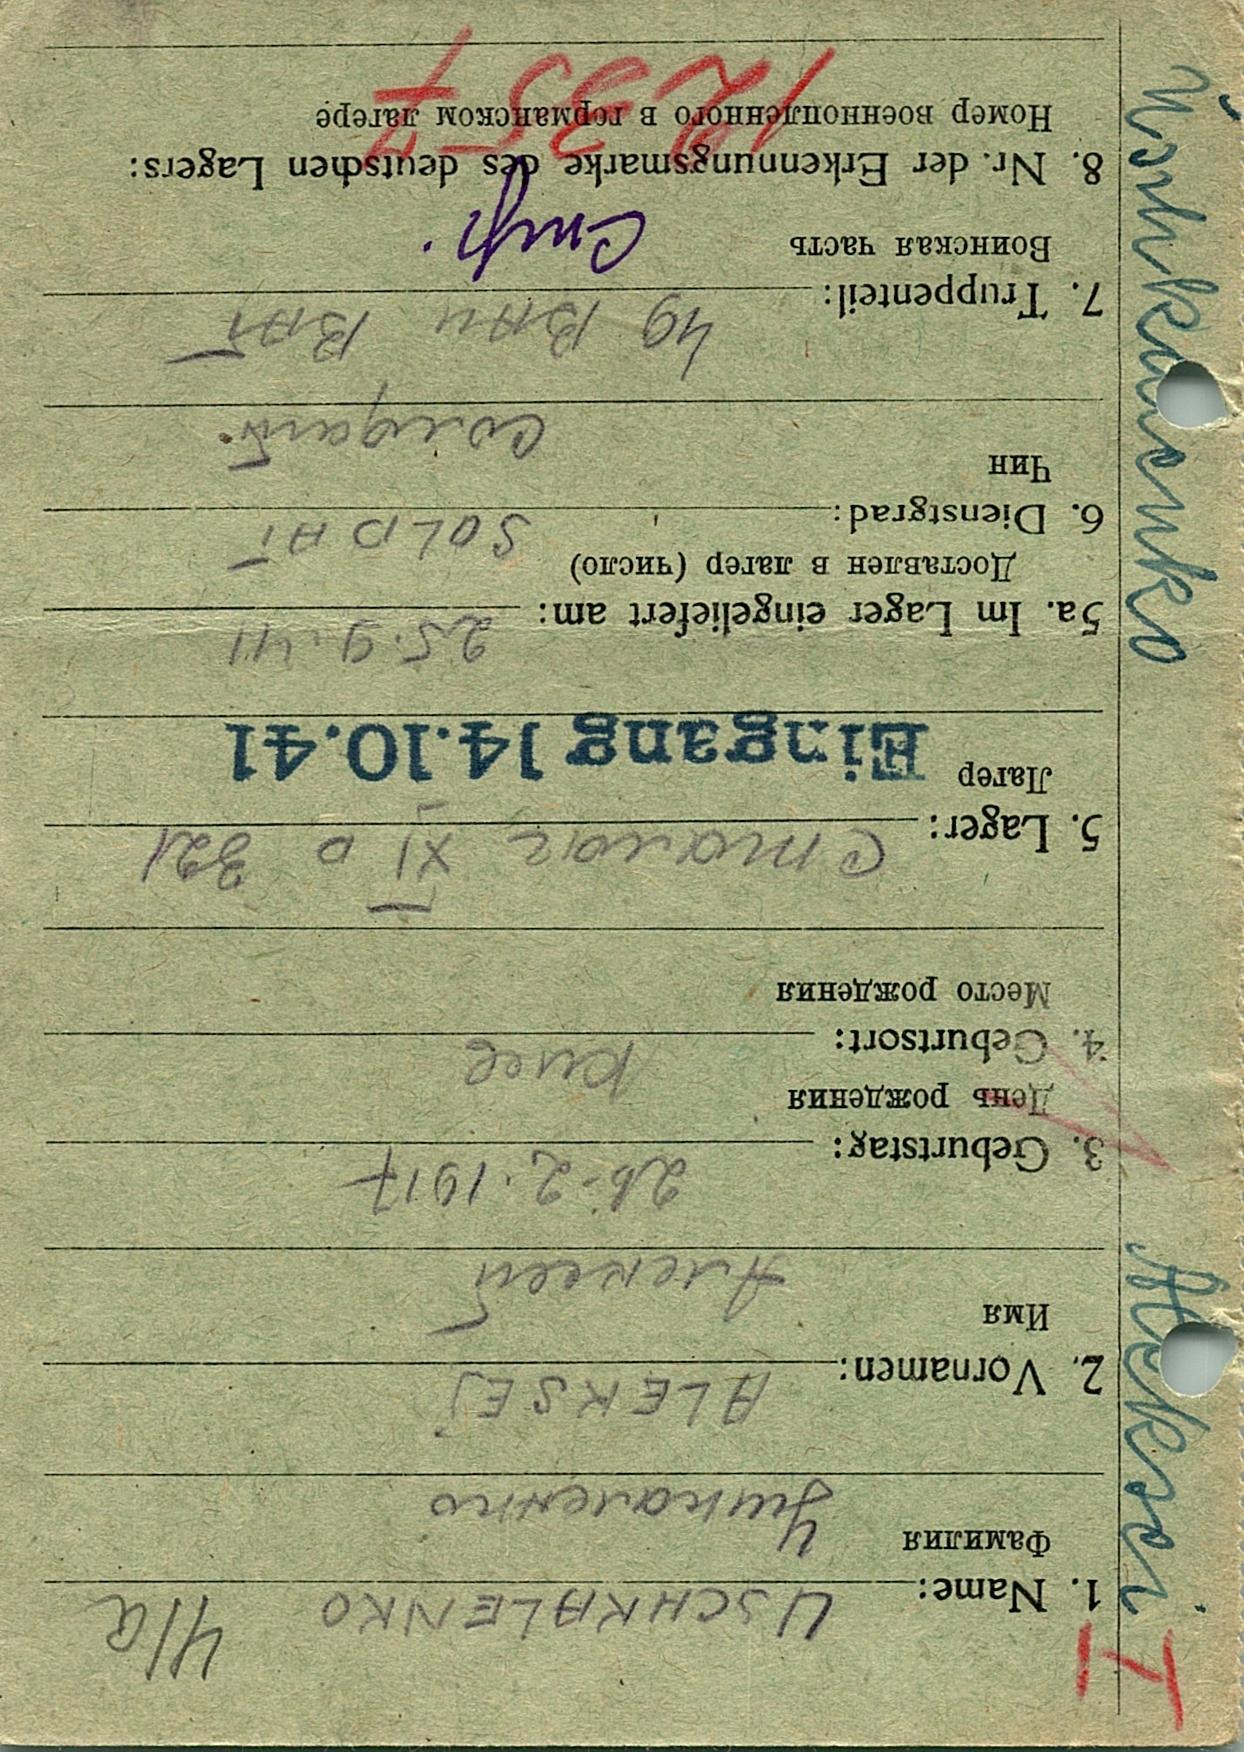 USCHKALENKO 41a
1. Name:
Фамилия
Ушкаленко
ALEKSEJ
2. Vornamen:
Имя
Алексей
26.2.1917
3. Geburtstag:
День рождения
Киев
4. Geburtsort:
Место рождения
Сталаг XI D 321
5. Lager:
Лагер
Eingang 14.10.41
25.9.41
5a. Im Lager eingeliefert am:
Доставлен в лагер (число)
SOLDAT
6. Dienstgrad:
Чин
солдат
49 BAU BAT
7. Truppenteil:
Воинская часть
8. Nr. der Erkennungsmarke des deutschen Lagers:
Номер военнопленного в германском лагере
12357
Aleksei